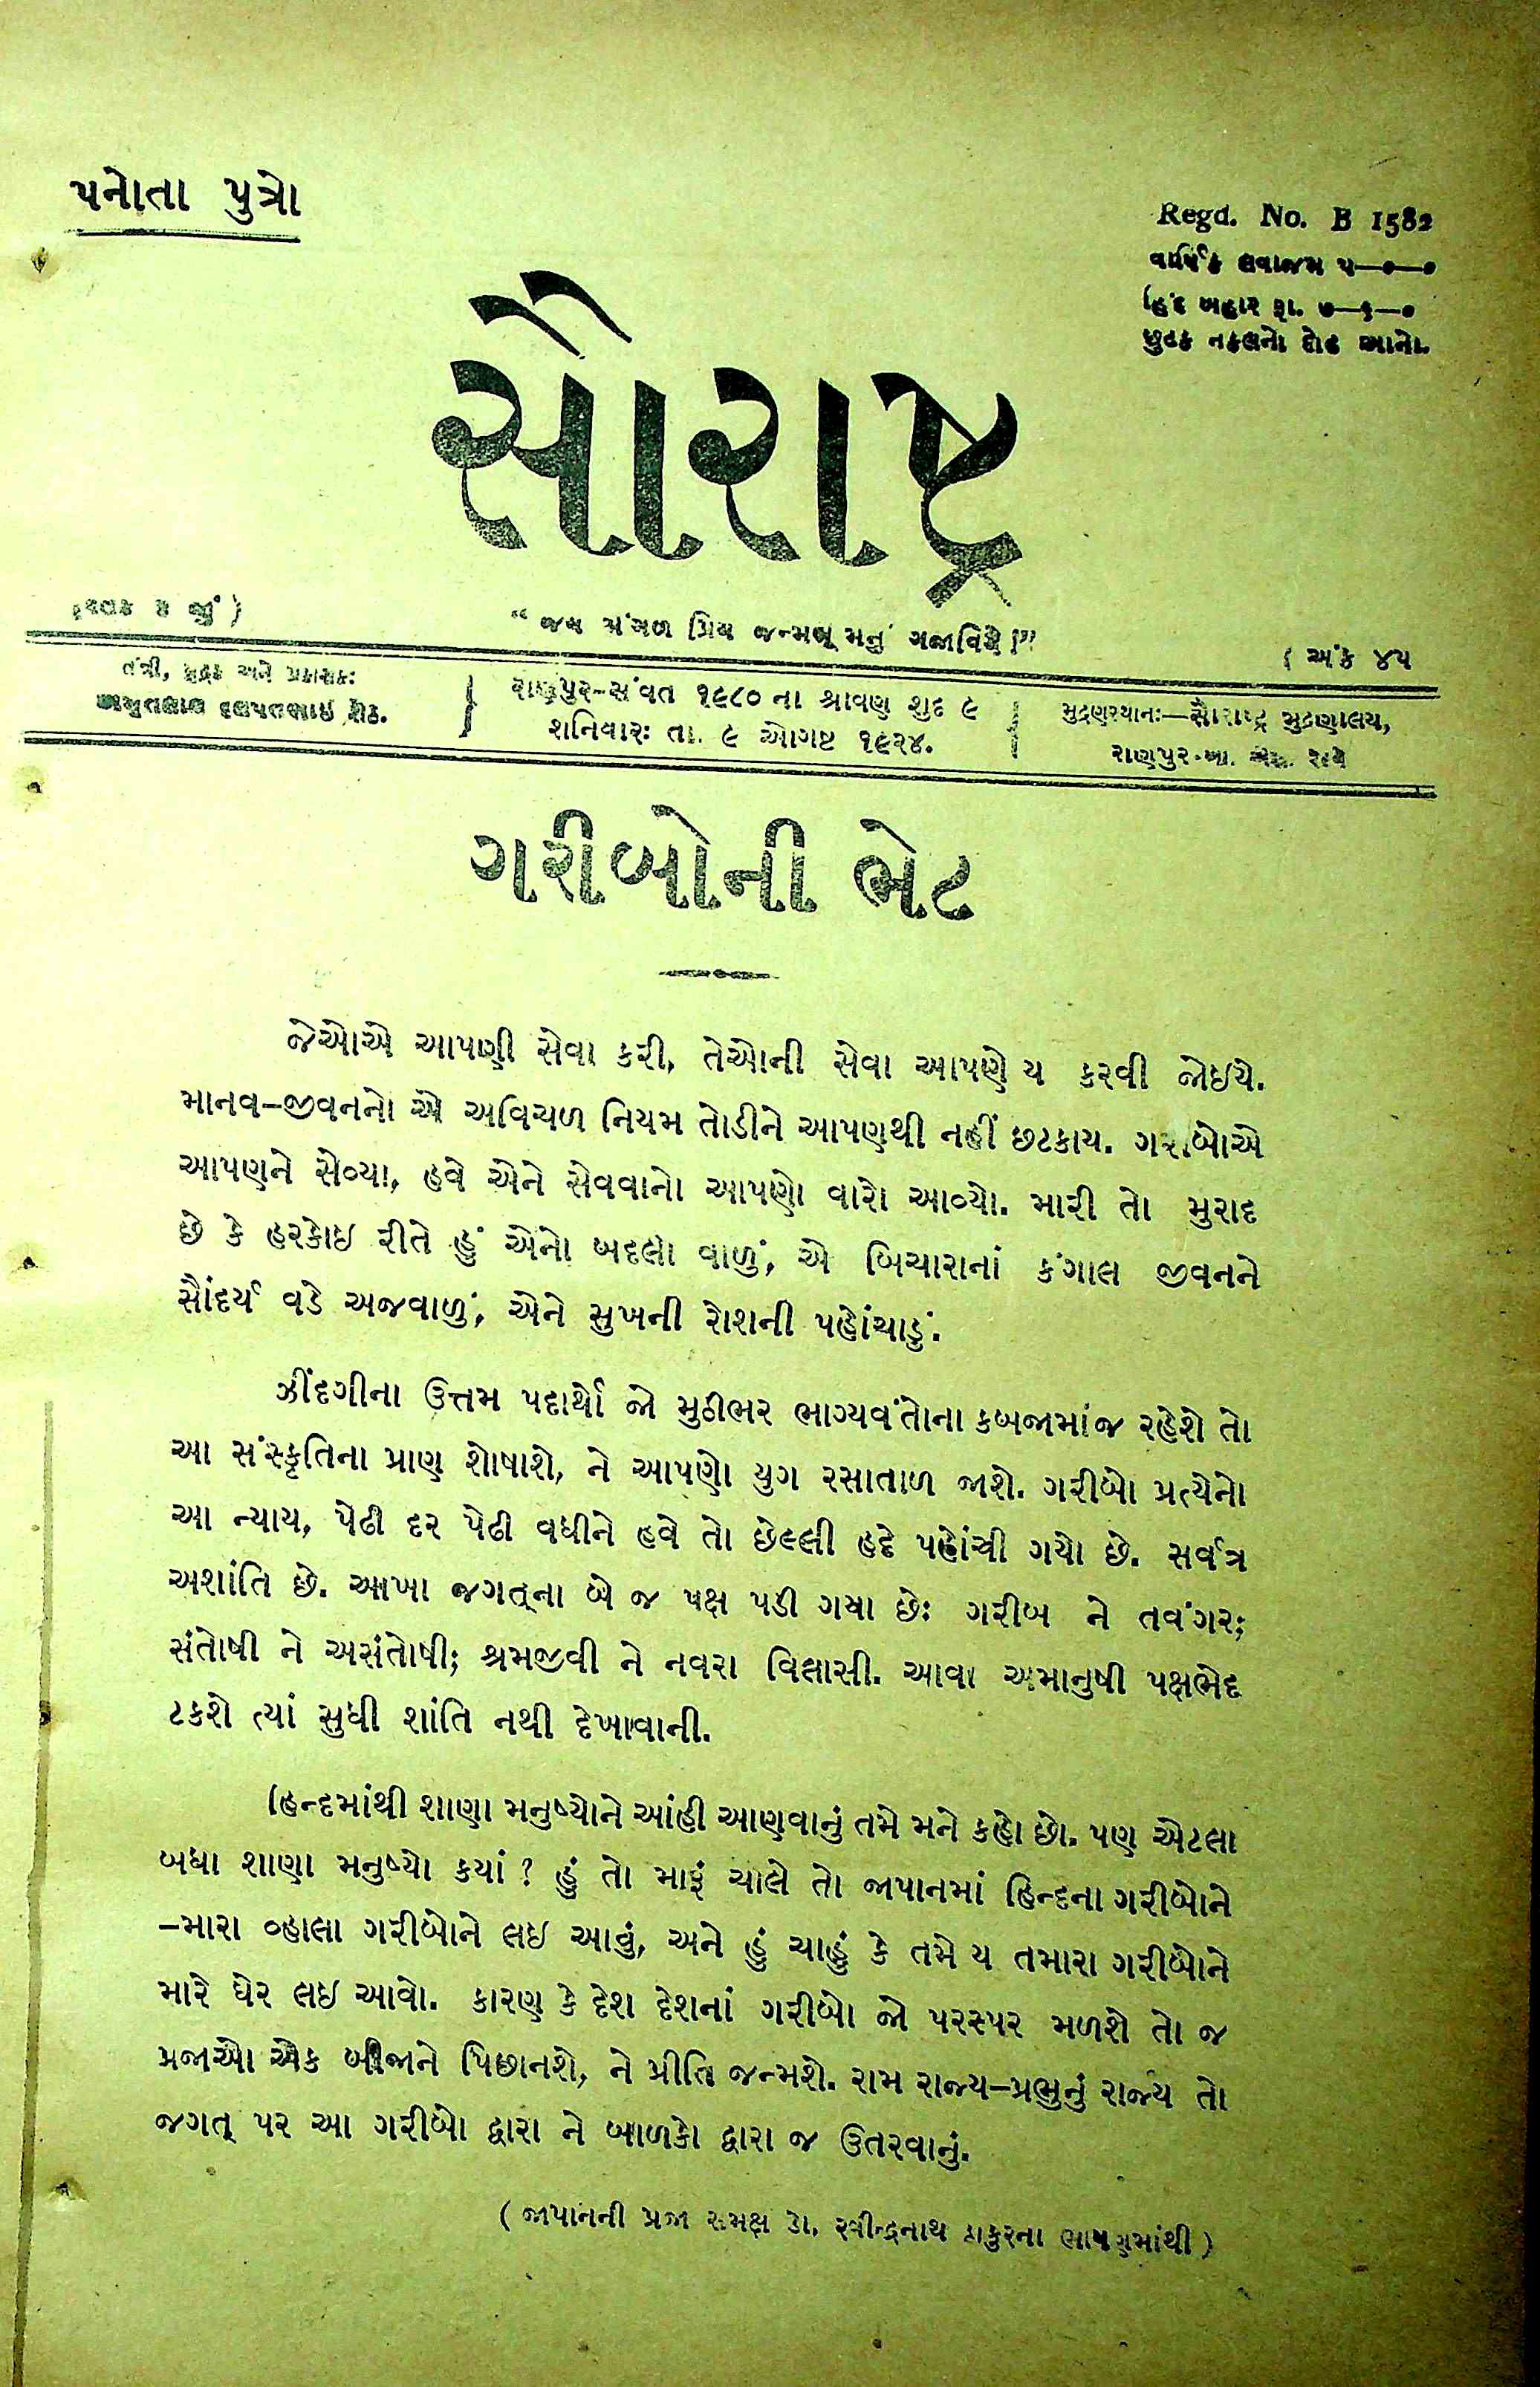 પનોતા પુત્રો
Regd. No. B 1582
વાર્ષિક લવાજમ ૫—૦—૦
હિંદ બહાર રૂા. ૭—૬—૦
છુટક નકલનો દોઢ આનો.
સૌરાષ્ટ્ર
જું )
પ્રિય જન્મભૂમનું
( અંક ૪૫
તંત્રી, મુદ્રક અને પ્રકાશક:
અમૃતલાલ દલપતભાઇ શેઠ.
રાણપુર-સંવત ૧૯૮૦ ના શ્રાવણ શુદ ૯
શનિવાર: તા. ૯ ઓગષ્ટ ૧૯૨૪.
મુદ્રણસ્થાન:—સૌરાષ્ટ્ર મુદ્રણાલય,
રાણપુર
ગરીબોની ભેટ
જેઓએ આપણી સેવા કરી, તેઓની સેવા આપણે ય કરવી જોઇયે.
માનવ-જીવનનો એ અવિચળ નિયમ તોડીને આપણથી નહીં છટકાય. ગરીબોએ
આપણને સેવ્યા, હવે એને સેવવાનો આપણો વારો આવ્યો. મારી તો મુરાદ
છે કે હરકોઇ રીતે હું એનો બદલો વાળું, એ બિચારાનાં કંગાલ જીવનને
સૌંદર્ય વડે અજવાળું, એને સુખની રોશની પહોંચાડું.
ઝીંદગીના ઉત્તમ પદાર્થો જો મુઠીભર ભાગ્યવંતોના કબજામાંજ રહેશે તો
આ સંસ્કૃતિના પ્રાણ શોષાશે, ને આપણો યુગ રસાતાળ જાશે. ગરીબો પ્રત્યેનો
આ ન્યાય, પેઢી દર પેઢી વધીને હવે તો છેલ્લી હદે પહોંચી ગયો છે. સર્વત્ર
અશાંતિ છે. આખા જગત્ના બે જ પક્ષ પડી ગયા છે: ગરીબ ને તવંગર;
સંતોષી ને અસંતોષી; શ્રમજીવી ને નવરા વિલાસી. આવા અમાનુષી પક્ષભેદ
ટકશે ત્યાં સુધી શાંતિ નથી દેખાવાની.
હિન્દમાંથી શાણા મનુષ્યોને આંહી આણવાનું તમે મને કહો છો. પણ એટલા
બધા શાણા મનુષ્યો કયાં ? હું તો મારૂં ચાલે તો જાપાનમાં હિન્દના ગરીબોને
-મારા વ્હાલા ગરીબોને લઇ આવું, અને હું ચાહું કે તમે ય તમારા ગરીબોને
મારે ઘેર લઇ આવો. કારણ કે દેશ દેશનાં ગરીબો જો પરસ્પર મળશે તો જ
પ્રજાઓ એક બીજાને પિછાનશે, ને પ્રીતિ જન્મશે. રામ રાજ્ય-પ્રભુનું રાજ્ય તો
જગત્ પર આ ગરીબો દ્વારા ને બાળકો દ્વારા જ ઉતરવાનું.
( જાપાનની પ્રજા સમક્ષ ડો. રવીન્દ્રનાથ ઠાકુરના ભાષણમાંથી )